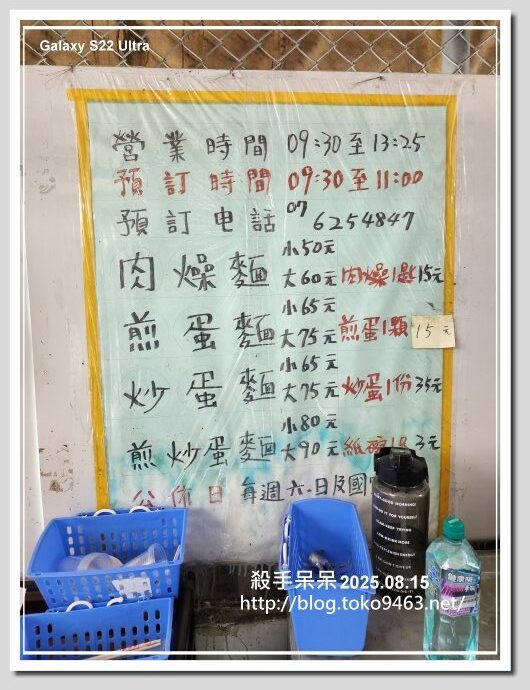 Galaxy S22 Ultra
營業時間 09:30至13:25
預訂時間 09:30至11:00
預訂电話 07 6254847
肉燥麵 小50元 大60元 肉燥1匙15元
煎蛋麵 小65元 大75元 煎蛋1顆 15元
炒蛋麵 小65元 大75元 炒蛋1份35元
煎炒蛋麵 小80元 大90元 紙碗 3元
公休日 每週六.日及國
殺手呆呆2025.08.15
http://blog.toko9463.net/